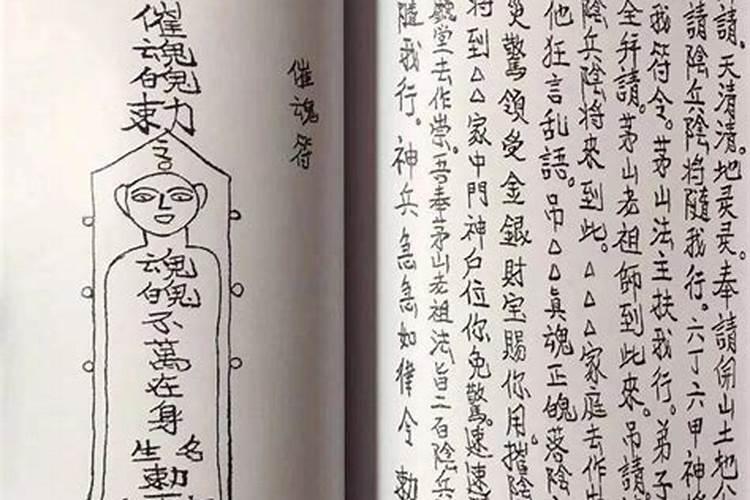 請。天清清。地灵灵。奉請開山土地公
請陰兵陰將隨我行。六丁六甲神將
我符令。茅山法主扶我行。弟子
全拜請。茅山老祖師到此来。吊請
陰兵陰將来到此。△△△家庭去作
他狂言乱語。吊△△真魂正魄落陰
災驚領受金銀財宝賜你用。摧陰
将到△△家中門神户位你免驚。速速
堂去作祟。吾奉茅山老祖法旨二百陰兵
隨我行。神兵急急如律令 勅
催魂符
催魂魄勅
魂魄不萬在身
生 名
勅